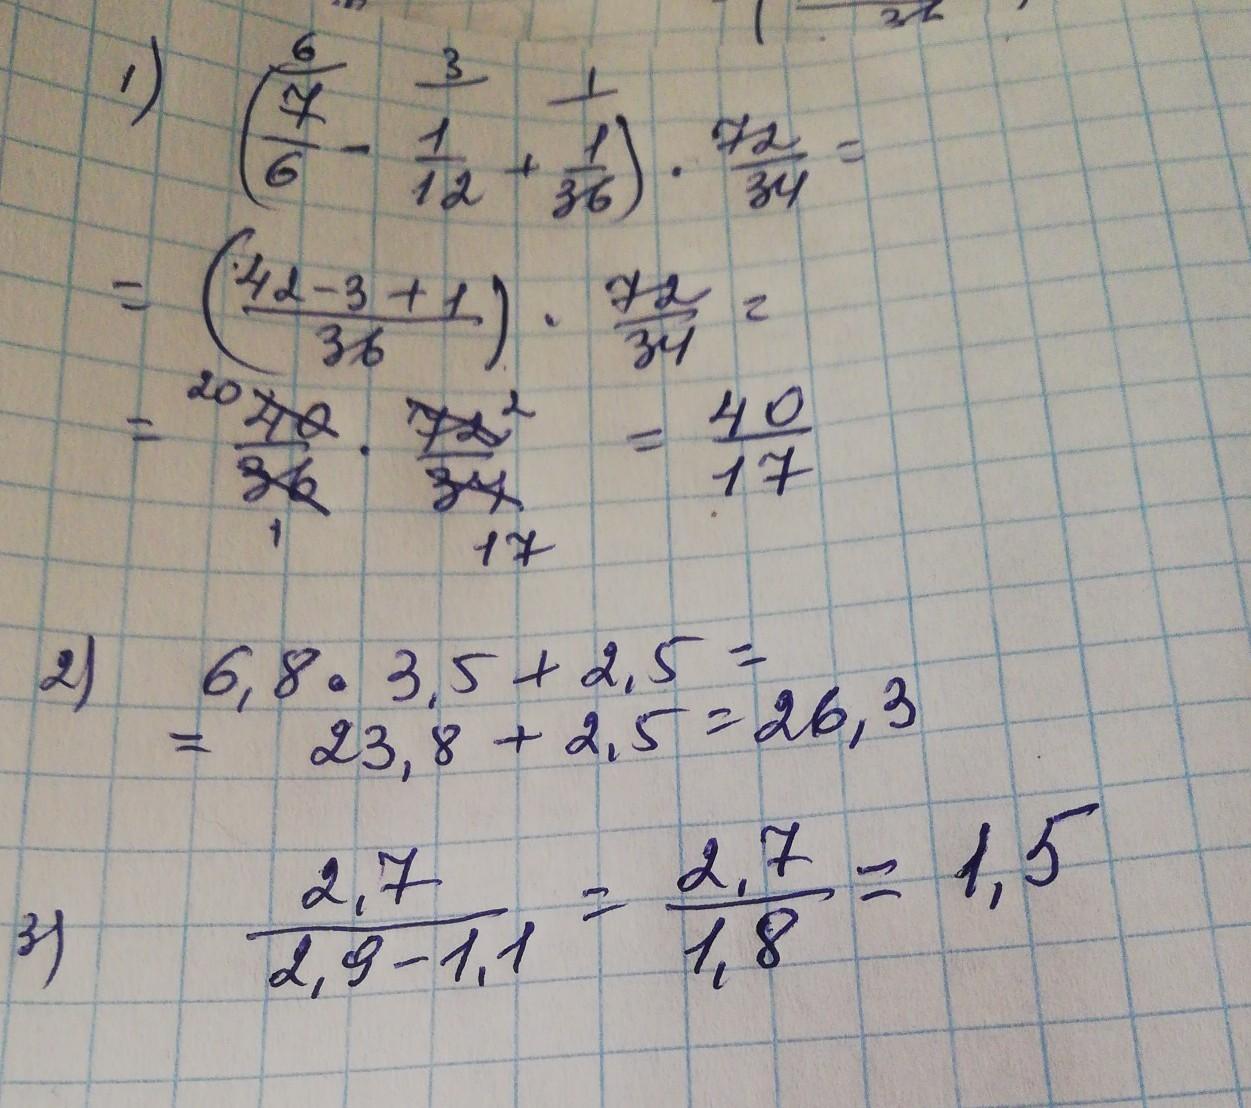 36
1) (7/6 - 1/12 + 1/36) · 72/34 =
6 3 1
= ((42-3+1)/36) · 72/34 =
= 40/36 · 72/34 = 40/17
20 2
1 17
2) 6,8 · 3,5 + 2,5 =
= 23,8 + 2,5 = 26,3
3) 2,7/(2,9-1,1) = 2,7/1,8 = 1,5